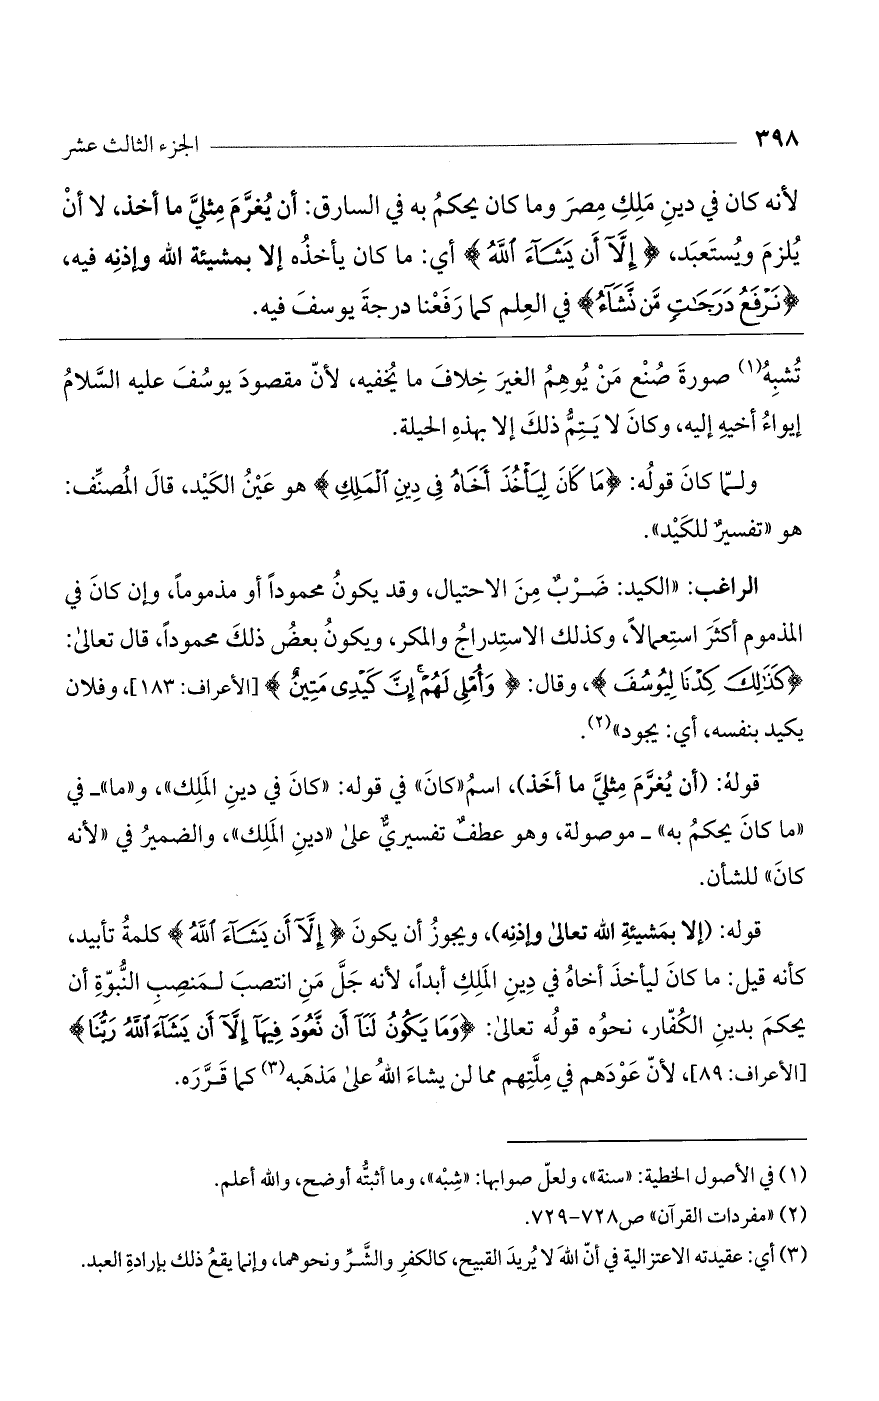 ٣٩٨ الجزء الثالث عشر
لأنه كان في دينِ مَلِكِ مِصرَ وما كان يحكمُ به في السارق: أن يُغرَّمَ مِثليَّ ما أخذ، لا أنْ
يُلزمَ ويُستَعبَد، ﴿ إِلَّآ أَن يَشَآءَ ٱللَّهُ ﴾ أي: ما كان يأخذُه إلا بمشيئة الله وإذنِه فيه،
﴿نَرۡفَعُ دَرَجَٰتٖ مَّن نَّشَآءُ﴾ في العِلم كما رَفَعْنا درجةَ يوسفَ فيه.
تُشبِهُ(١) صورةَ صُنْعِ مَنْ يُوهِمُ الغيرَ خِلافَ ما يُخفيه، لأنّ مقصودَ يوسُفَ عليه السَّلامُ
إيواءُ أخيهِ إليه، وكانَ لا يَتِمُّ ذلكَ إلا بهذهِ الحيلة.
ولـمّا كانَ قولُه: ﴿مَا كَانَ لِيَأۡخُذَ أَخَاهُ فِي دِينِ ٱلۡمَلِكِ﴾ هو عَيْنُ الكَيْد، قالَ المُصنِّف:
هو «تفسيرٌ للكَيْد».
الراغب: «الكيد: ضَرْبٌ مِنَ الاحتيال، وقد يكونُ محموداً أو مذموماً، وإن كانَ في
المذموم أكثَرَ استِعمالاً، وكذلك الاستِدراجُ والمكر، ويكونُ بعضُ ذلكَ محموداً، قال تعالىٰ:
﴿كَذَٰلِكَ كِدۡنَا لِيُوسُفَ ﴾، وقال: ﴿ وَأُمۡلِي لَهُمۡۚ إِنَّ كَيۡدِي مَتِينٌ ﴾ [الأعراف: ١٨٣]، وفلان
يكيد بنفسه، أي: يجود»(٢).
قولهُ: (أن يُغرَّمَ مِثليَّ ما أخَذ)، اسمُ«كانَ» في قوله: «كانَ في دينِ المَلِك»، و«ما»ـ في
«ما كانَ يحكمُ به» ـ موصولة، وهو عطفٌ تفسيريٌّ علىٰ «دينِ المَلِك»، والضميرُ في «لأنه
كانَ» للشأن.
قوله: (إلا بمَشيئةِ الله تعالىٰ وإذنِه)، ويجوزُ أن يكونَ ﴿ إِلَّآ أَن يَشَآءَ ٱللَّهُ ﴾ كلمةُ تأبيد،
كأنه قيل: ما كانَ ليأخذَ أخاهُ في دِينِ المَلِكِ أبداً، لأنه جَلَّ مَنِ انتصبَ لـمَنصِبِ النُّبوّةِ أن
يحكمَ بدينِ الكُفّار، نحوُه قولُه تعالىٰ: ﴿وَمَا يَكُونُ لَنَآ أَن نَّعُودَ فِيهَآ إِلَّآ أَن يَشَآءَ ٱللَّهُ رَبُّنَا﴾
[الأعراف: ٨٩]، لأنّ عَوْدَهم في مِلَّتِهم مما لن يشاءَ اللهُ علىٰ مَذهَبِه(٣) كما قَرَّرَه.
(١) في الأصول الخطية: «سنة»، ولعلّ صوابها: «شِبْه»، وما أثبتُّه أوضح، والله أعلم.
(٢) «مفردات القرآن» ص٧٢٨-٧٢٩.
(٣) أي: عقيدته الاعتزالية في أنّ اللهَ لا يُريدَ القبيح، كالكفرِ والشَّرِّ ونحوهما، وإنما يقعُ ذلك بإرادةِ العبد.